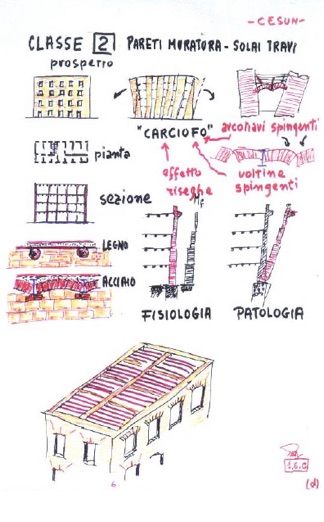 - CESUN -
CLASSE 2 PARETI MURATURA - SOLAI TRAVI
prospetto
"CARCIOFO"
arconavi spingenti
pianta
effetto riseghe
voltine spingenti
sezione
LEGNO
ACCIAIO
FISIOLOGIA
PATOLOGIA
6
(d)